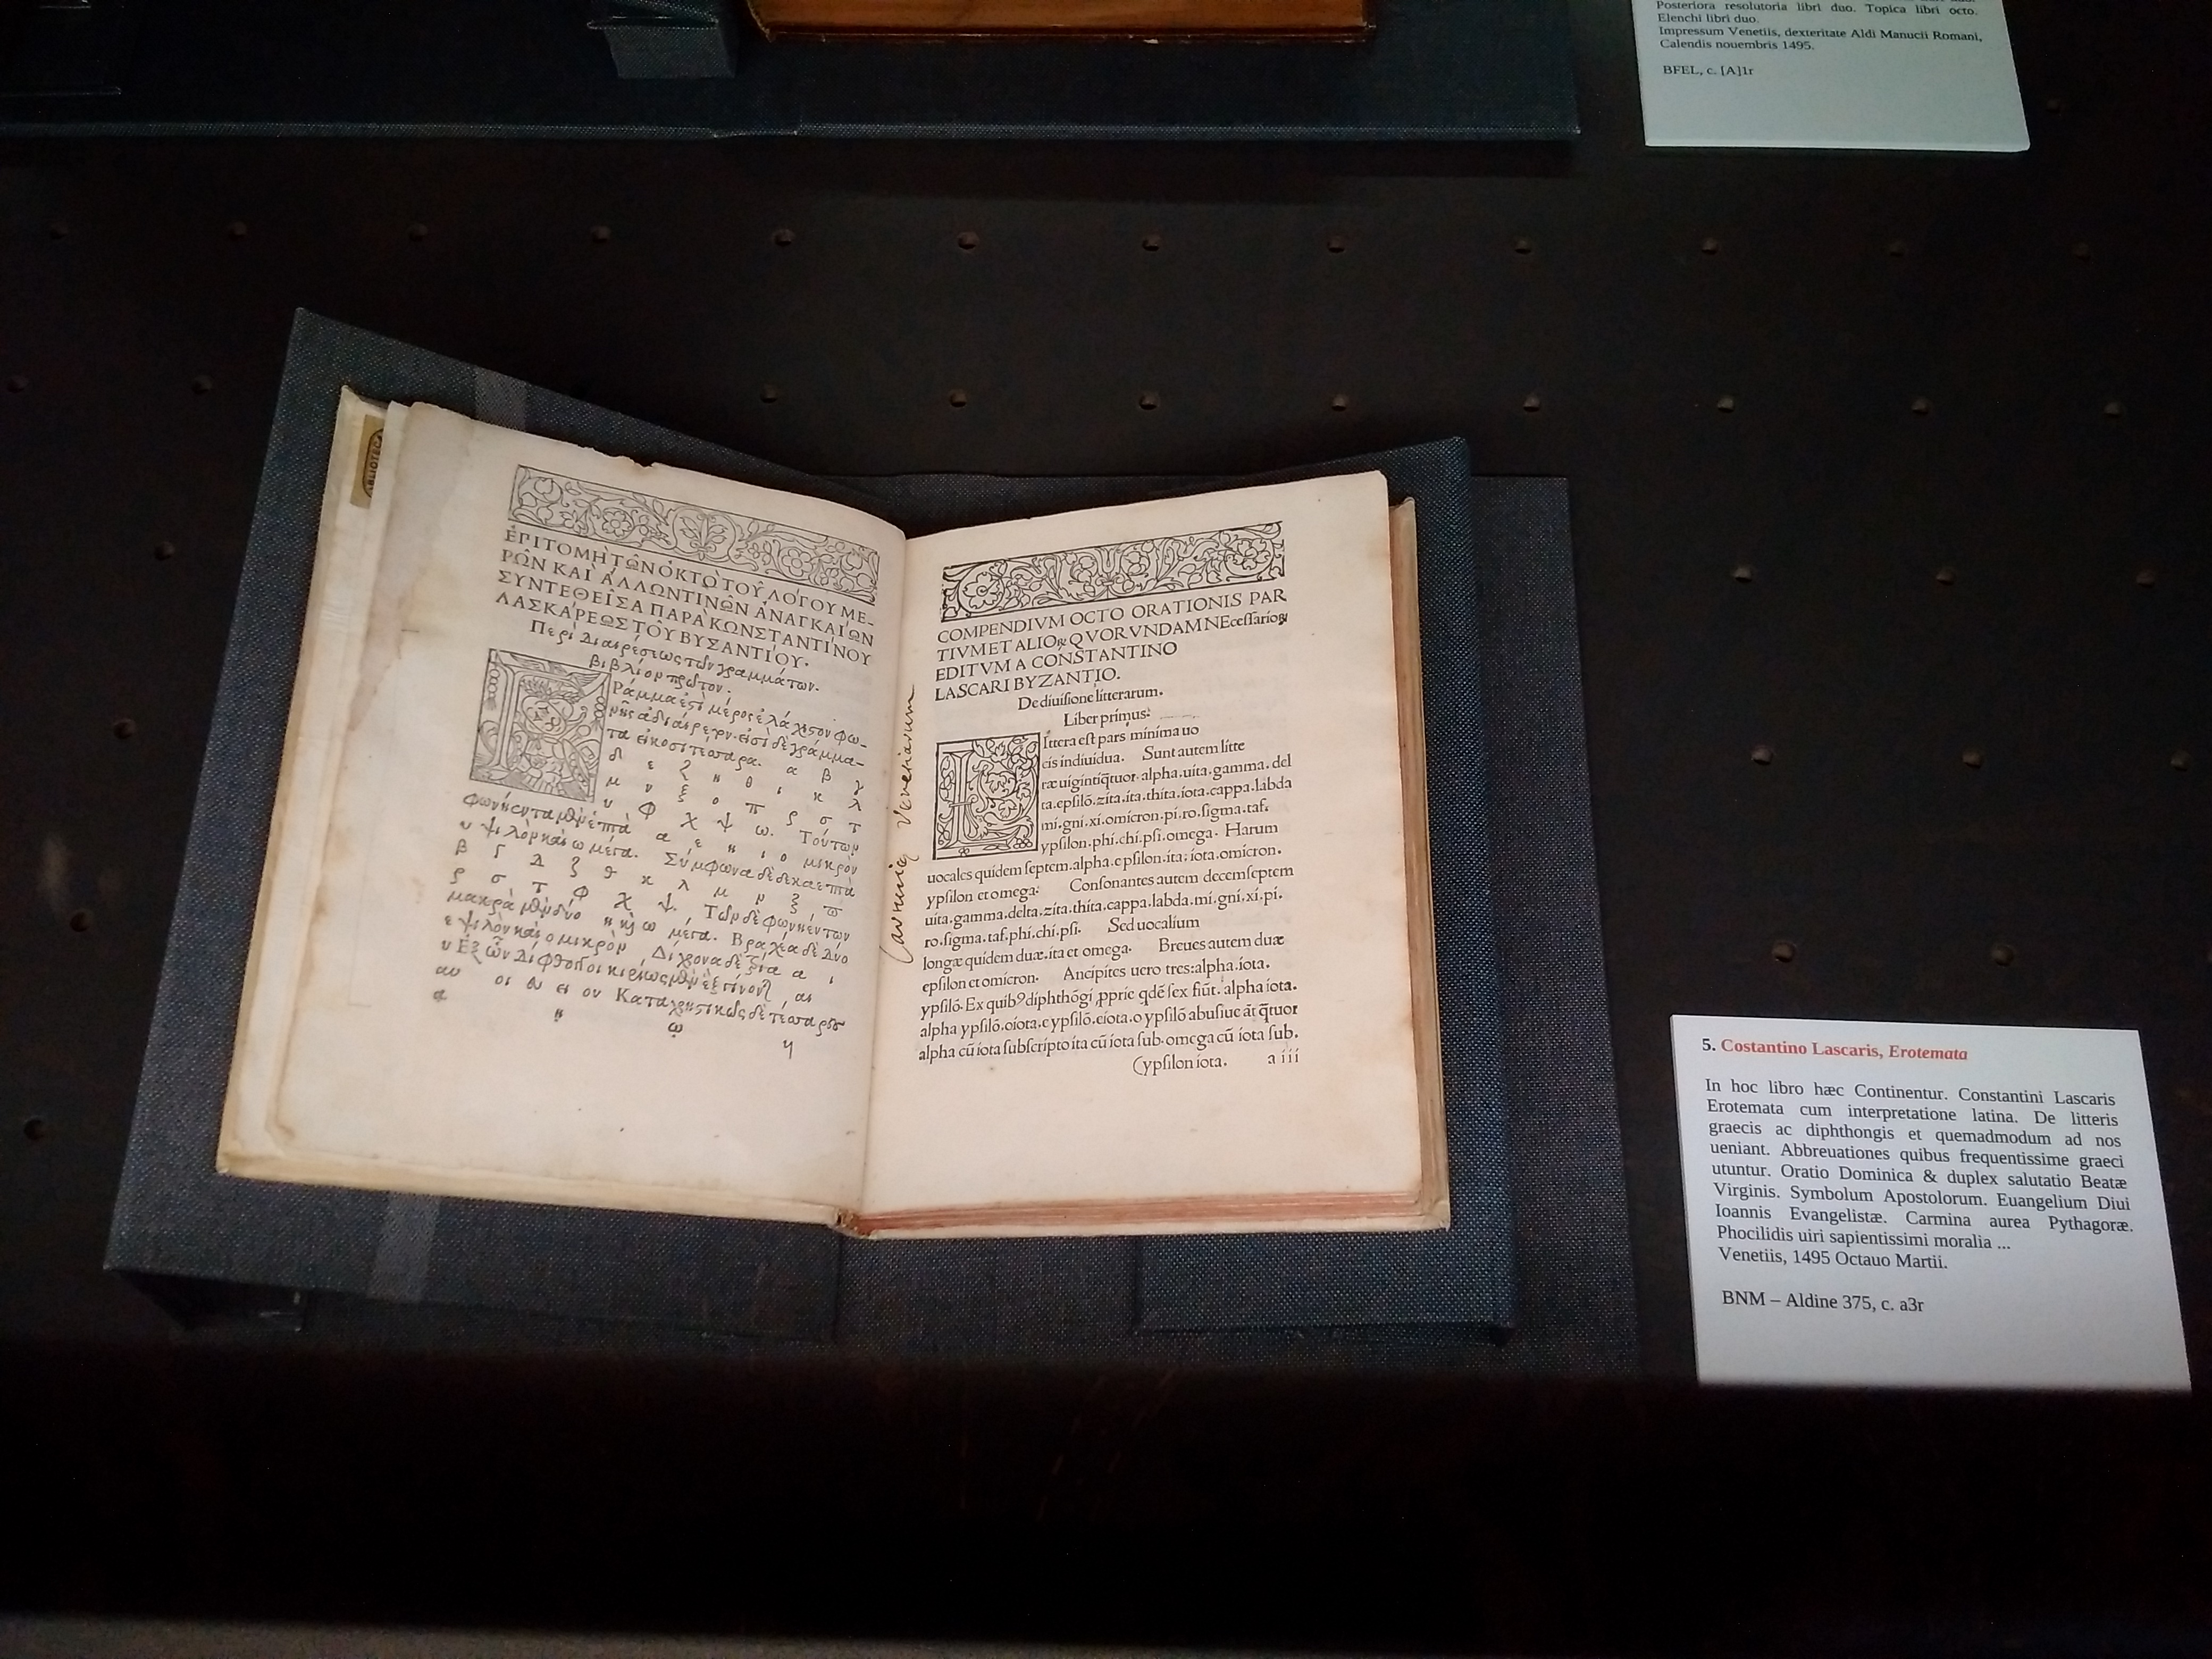 Posteriora resolutoria libri duo. Topica libri octo.
Elenchi libri duo.
Impressum Venetiis, dexteritate Aldi Manucii Romani,
Calendis nouembris 1495.
BFEL, c. [A]1r
ΕΠΙΤΟΜΗ ΤΩΝ ΟΚΤΩ ΤΟΥ ΛΟΓΟΥ ΜΕ-
ΡΩΝ ΚΑΙ ΑΛΛΩΝ ΤΙΝΩΝ ΑΝΑΓΚΑΙΩΝ
ΣΥΝΤΕΘΕΙΣΑ ΠΑΡΑ ΚΩΝΣΤΑΝΤΙΝΟΥ
ΛΑΣΚΑΡΕΩΣ ΤΟΥ ΒΥΖΑΝΤΙΟΥ·
Περὶ διαιρέσεως τῶν γραμμάτων.
βιβλίον πρῶτον.
Ράμμα ἐστὶ μέρος ἐλάχιστον φω-
νῆς ἀδιαίρετον. εἰσὶ δὲ γράμμα-
τα εἰκοσιτέσσαρα. α β γ
δ ε ζ η θ ι κ λ
μ ν ξ ο π ρ σ τ
υ φ χ ψ ω. Τούτων
φωνήεντα μὲν ἑπτὰ α ε η ι ο μικρὸν
υ ψιλὸν καὶ ω μέγα. Σύμφωνα δὲ δεκαεπτὰ
β γ δ ζ θ κ λ μ ν ξ, π
ρ σ τ φ χ ψ. Τῶν δὲ φωνηέντων
μακρὰ μὲν δύο η καὶ ω μέγα. Βραχέα δὲ δύο
ε ψιλὸν καὶ ο μικρὸν, Δίχρονα δὲ τρία α ι
υ Ἐξ ὧν δίφθογγοι κυρίως μὲν ἓξ γίνονται, αι
αυ οι ευ ει ου Καταχρηστικῶς δὲ τέσσαρες
ᾳ ῃ ῳ υι
COMPENDIVM OCTO ORATIONIS PAR
TIVM ET ALIOꝝ QVORVNDAM NEceſſarioꝝ
EDITVM A CONSTANTINO
LASCARI BYZANTIO.
De diuiſione litterarum.
Liber primus:
Ittera eſt pars minima uo
cis indiuidua. Sunt autem litte
ræ uigintiq̃tuor. alpha.uita.gamma.del
ta.epſilõ.zita.ita.thita.iota.cappa.labda
mi.gni.xi.omicron.pi.ro.ſigma.taf.
ypſilon.phi.chi.pſi.omega. Harum
uocales quidem ſeptem.alpha.epſilon.ita: iota.omicron.
ypſilon et omega: Conſonantes autem decemſeptem
uita.gamma.delta.zita.thita.cappa.labda.mi.gni.xi.pi.
ro.ſigma.taf.phi.chi.pſi. Sed uocalium
longæ quidem duæ.ita et omega. Breues autem duæ
epſilon et omicron. Ancipites uero tres:alpha.iota.
ypſilõ. Ex quibꝰ diphthõgi ꝓprie qdẽ ſex fiũt. alpha iota.
alpha ypſilõ.oiota.e ypſilõ.eiota.o ypſilõ abuſiue ãt q̃tuor
alpha cũ iota ſubſcripto ita cũ iota ſub. omega cũ iota ſub.
(ypſilon iota. a iii
Venetiarum
5. Costantino Lascaris, Erotemata
In hoc libro hæc Continentur. Constantini Lascaris
Erotemata cum interpretatione latina. De litteris
graecis ac diphthongis et quemadmodum ad nos
ueniant. Abbreuationes quibus frequentissime graeci
utuntur. Oratio Dominica & duplex salutatio Beatæ
Virginis. Symbolum Apostolorum. Euangelium Diui
Ioannis Evangelistæ. Carmina aurea Pythagoræ.
Phocilidis uiri sapientissimi moralia ...
Venetiis, 1495 Octauo Martii.
BNM – Aldine 375, c. a3r